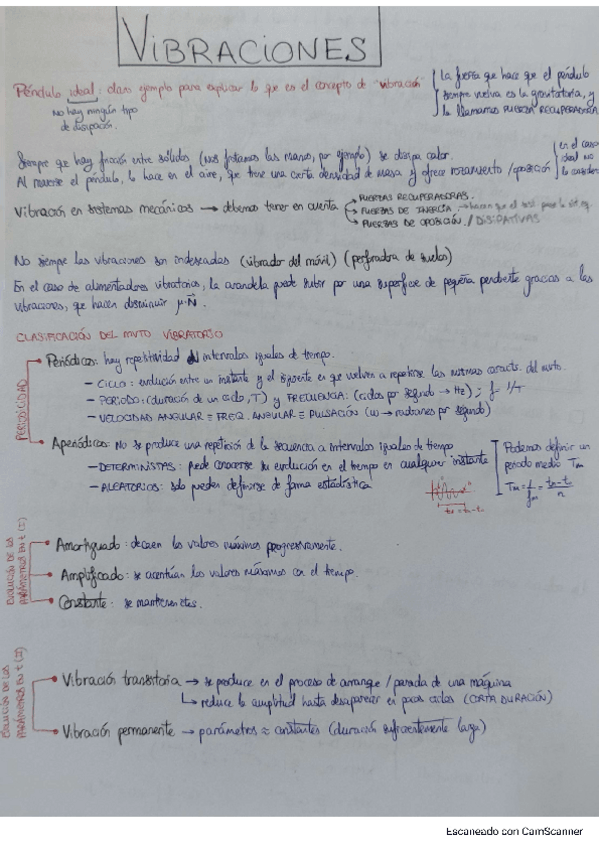 VIBRACIONES
Péndulo ideal: claro ejemplo para explicar lo que es el concepto de "vibración"
No hay ningún tipo
de disipación.
La fuerza que hace que el péndulo
siempre vuelva es la gravitatoria, y
la llamamos FUERZA RECUPERADORA
Siempre que hay fricción entre sólidos (nos frotamos las manos, por ejemplo) se disipa calor.
Al moverse el péndulo, lo hace en el aire, que tiene una cierta densidad de masa y ofrece rozamiento/oposición
en el caso
ideal no
lo consider
Vibración en sistemas mecánicos → debemos tener en cuenta
FUERZAS RECUPERADORAS.
FUERZAS DE INERCIA → hacen que el
FUERZAS DE OPOSICIÓN / DISIPATIVAS
No siempre las vibraciones son indeseadas (vibrador del móvil) (perforadora de suelos)
En el caso de alimentadores vibratorios, la arandela puede subir por una superficie de pequeña pendiente gracias a las
vibraciones, que hacen disminuir μ·N.
CLASIFICACIÓN DEL MVTO VIBRATORIO
PERIODICIDAD
Periódicos: hay repetitividad a intervalos iguales de tiempo.
- CICLO: evolución entre un instante y el siguiente en que vuelven a repetirse las mismas caracts. del mvto.
- PERIODO: (duración de un ciclo, T) y FRECUENCIA: (ciclos por segundo → Hz) ; f = 1/T
- VELOCIDAD ANGULAR ≡ FREQ. ANGULAR ≡ PULSACIÓN (ω → radianes por segundo)
Aperiódicos: No se produce una repetición de la secuencia a intervalos iguales de tiempo
- DETERMINISTAS: puede conocerse su evolución en el tiempo en cualquier instante
- ALEATORIOS: solo pueden definirse de forma estadística
Podemos definir un
periodo medio Tm
Tm = 1/fm = tn - t0/n
tn - t0
EVOLUCIÓN DE LOS
PARÁMETROS EN t (I)
Amortiguado: decaen los valores máximos progresivamente.
Amplificado: se acentúan los valores máximos con el tiempo.
Constante: se mantienen estos.
EVOLUCIÓN DE LOS
PARÁMETROS EN t (II)
Vibración transitoria → se produce en el proceso de arranque / parada de una máquina
↳ reduce la amplitud hasta desaparecer en pocos ciclos (CORTA DURACIÓN)
Vibración permanente → parámetros ≈ constantes (duración suficientemente larga)
Escaneado con CamScanner